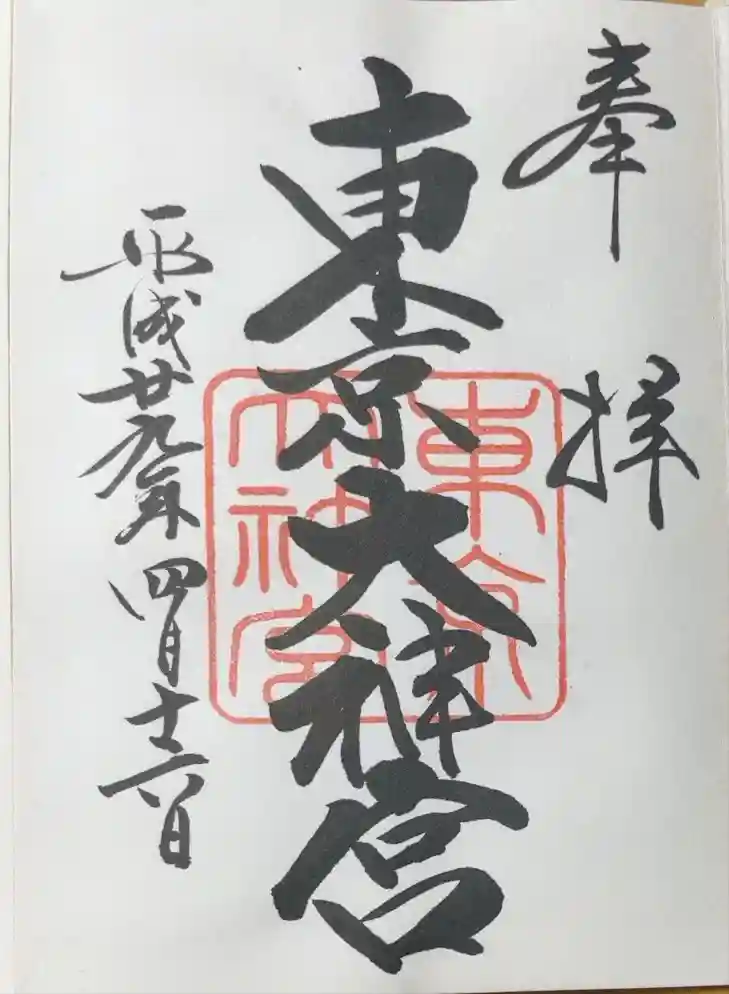 奉拝
東京大神宮
東京大神宮
平成廿九年四月十六日